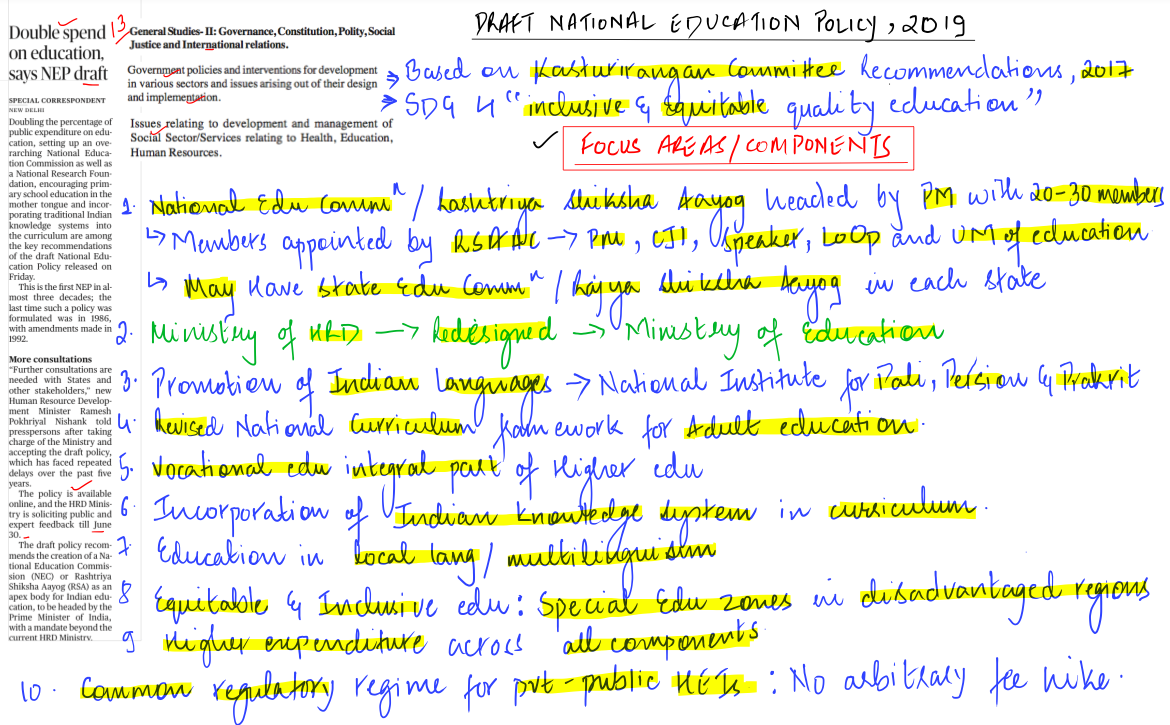 Double spend
on education,
says NEP draft
SPECIAL CORRESPONDENT
NEW DELHI
Doubling the percentage of
public expenditure on edu-
cation, setting up an ove-
rarching National Educa-
tion Commission as well as
a National Research Foun-
dation, encouraging prim-
ary school education in the
mother tongue and incor-
porating traditional Indian
knowledge systems into
the curriculum are among
the key recommendations
of the draft National Edu-
cation Policy released on
Friday.
This is the first NEP in al-
most three decades; the
last time such a policy was
formulated was in 1986,
with amendments made in
1992.
More consultations
"Further consultations are
needed with States and
other stakeholders," new
Human Resource Develop-
ment Minister Ramesh
Pokhriyal Nishank told
presspersons after taking
charge of the Ministry and
accepting the draft policy,
which has faced repeated
delays over the past five
years.
The policy is available
online, and the HRD Minis-
try is soliciting public and
expert feedback till June
30.
The draft policy recom-
mends the creation of a Na-
tional Education Commis-
sion (NEC) or Rashtriya
Shiksha Aayog (RSA) as an
apex body for Indian edu-
cation, to be headed by the
Prime Minister of India,
with a mandate beyond the
current HRD Ministry.
13
General Studies- II: Governance, Constitution, Polity, Social
Justice and International relations.
Government policies and interventions for development
in various sectors and issues arising out of their design
and implementation.
Issues relating to development and management of
Social Sector/Services relating to Health, Education,
Human Resources.
DRAFT NATIONAL EDUCATION POLICY, 2019
Based on Kasturirangan Committee Recommendations, 2017
SDG 4 "inclusive & Equitable quality education"
FOCUS AREAS/COMPONENTS
1. National Edu Commn / Rashtriya Shiksha Aayog headed by PM with 20-30 members
↳ Members appointed by RSAAC → PM, CJI, Speaker, LoOp and UM of education
↳ May Have State Edu Commn / Rajya Shiksha Aayog in each state
2. Ministry of HRD → Redesigned → Ministry of Education
3. Promotion of Indian Languages → National Institute for Pali, Persion & Prakrit
4. Revised National Curriculum framework for Adult education.
5. Vocational edu integral part of Higher edu
6. Incorporation of Indian Knowledge system in curriculum.
7. Education in local lang / multilinguism
8 Equitable & Inclusive edu: Special Edu zones in disadvantaged regions
9 Higher expenditure across all components
10. Common regulatory regime for pvt-public HEIs: No arbitrary fee hike.